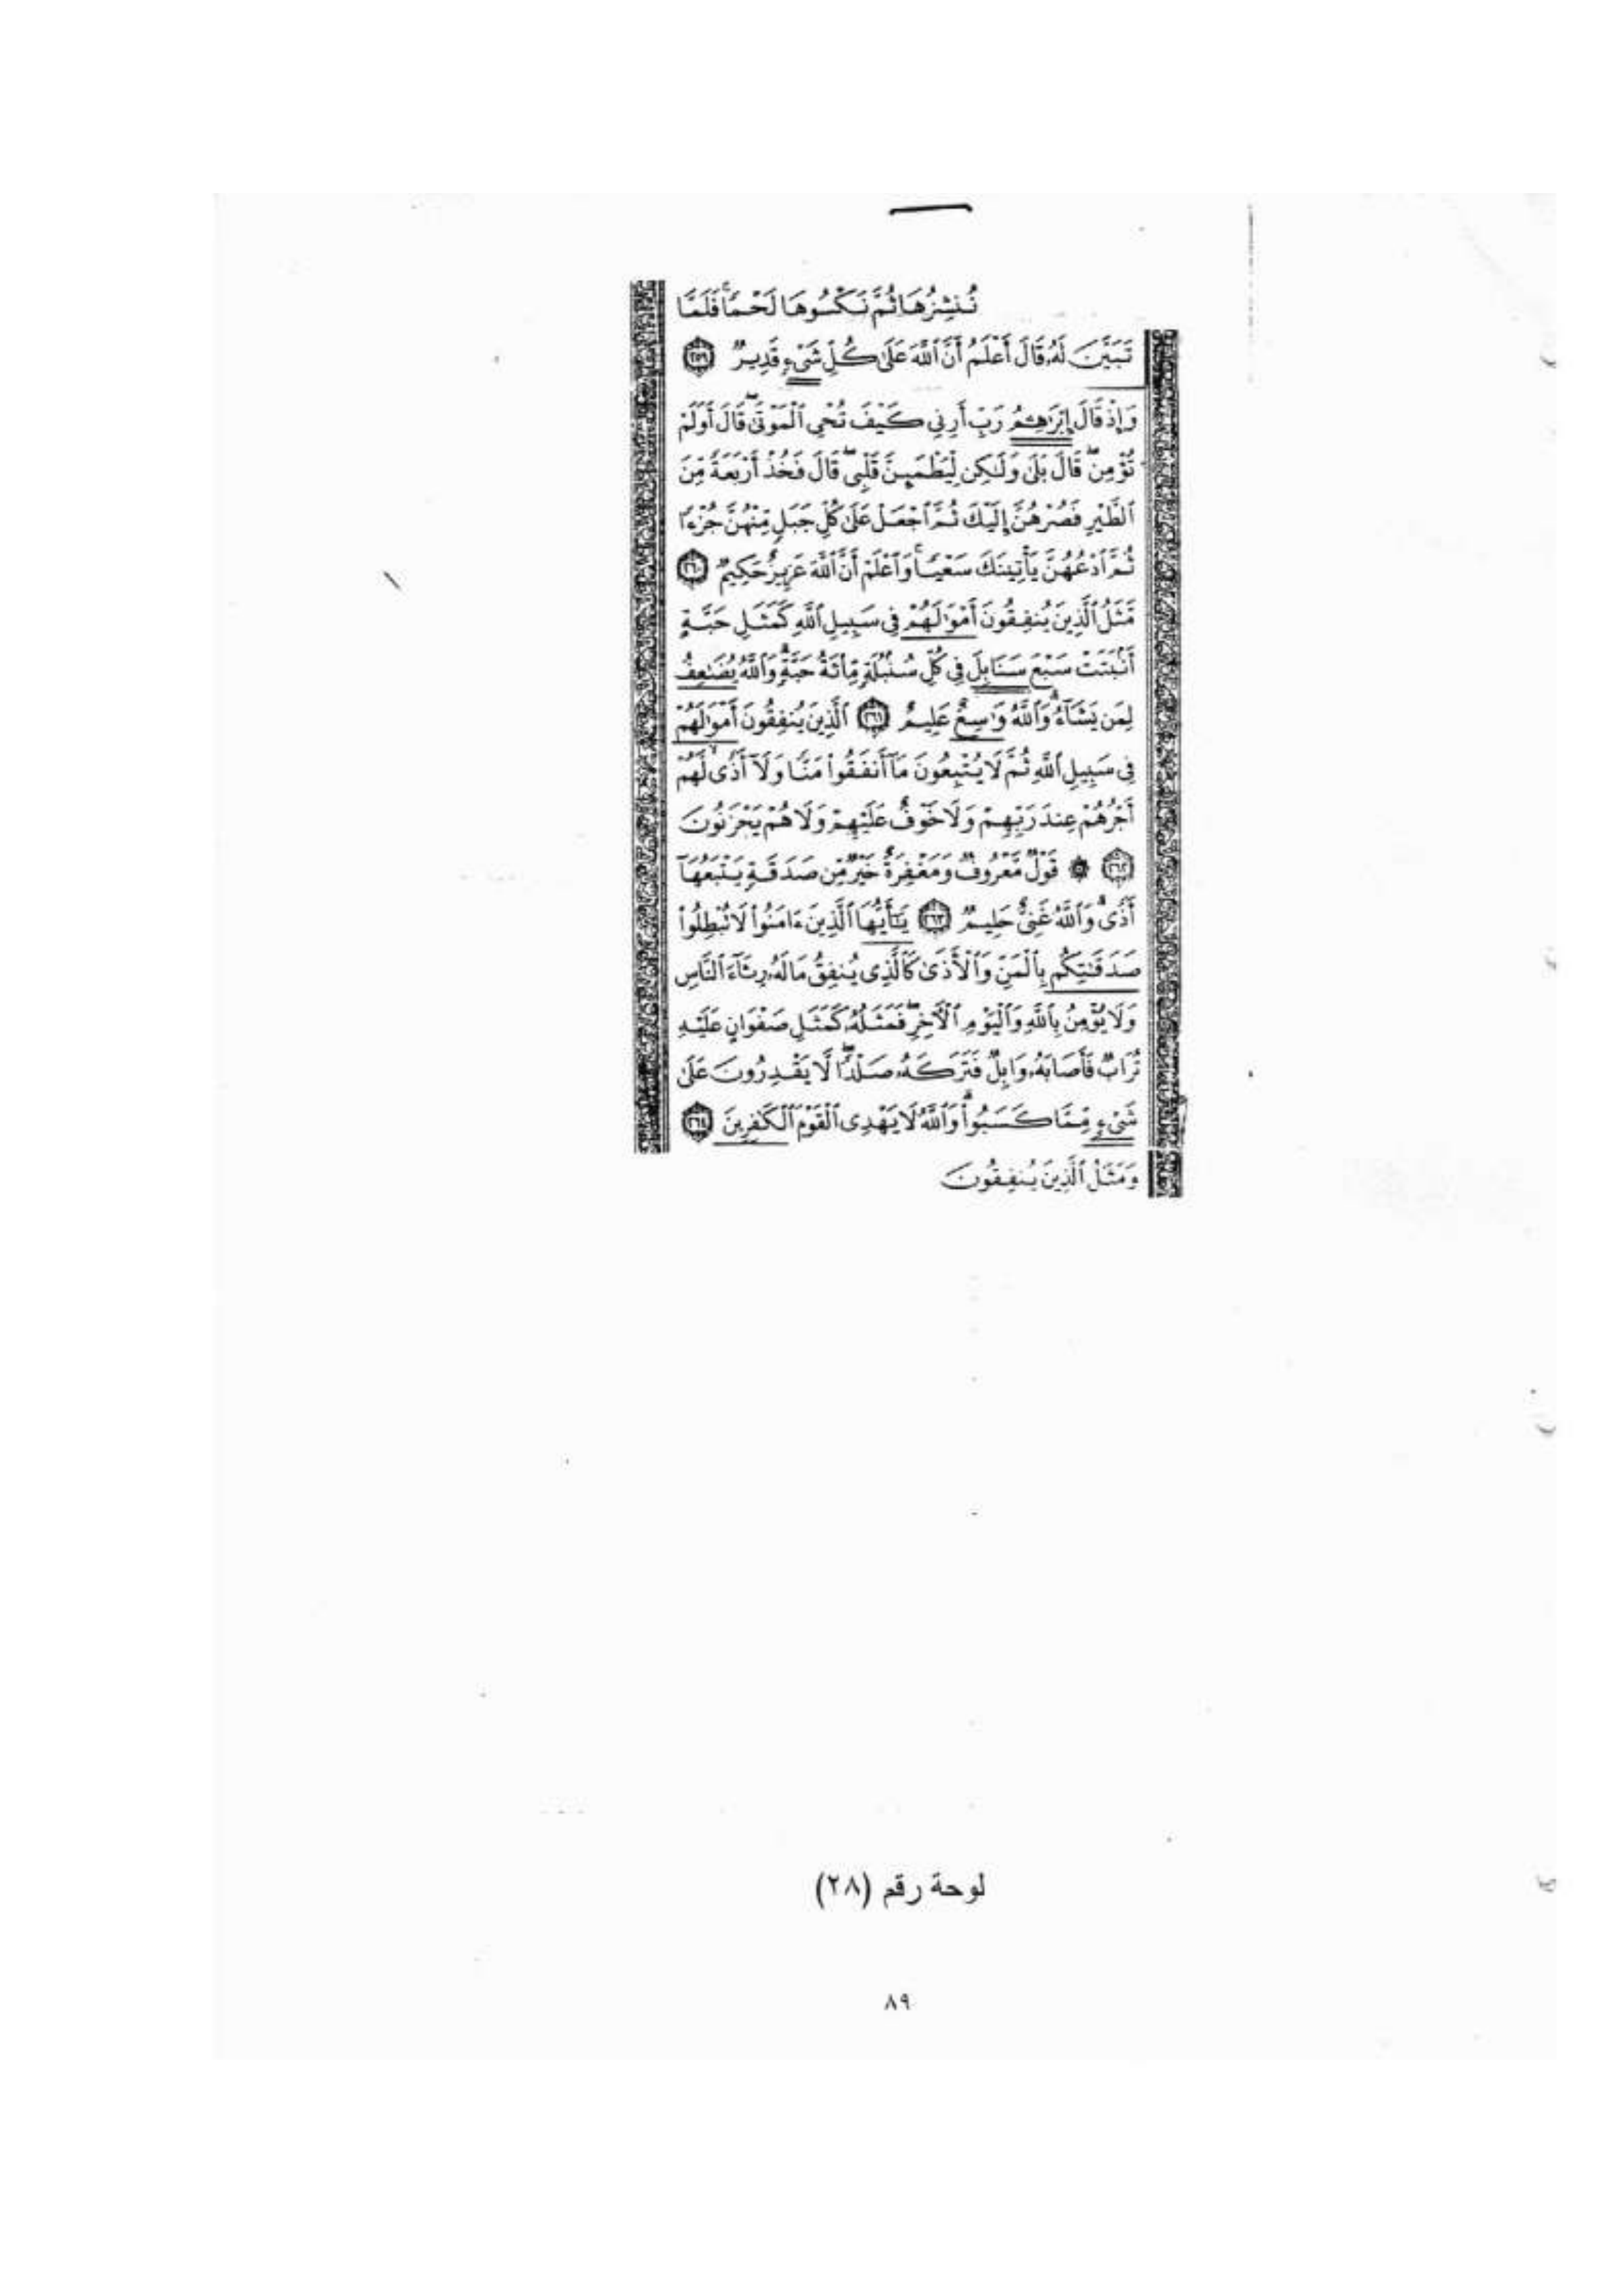 نُنشِزُهَا ثُمَّ نَكْسُوهَا لَحْمًا ۚ فَلَمَّا
تَبَيَّنَ لَهُۥ قَالَ أَعْلَمُ أَنَّ ٱللَّهَ عَلَىٰ كُلِّ شَىْءٍ قَدِيرٌ ﴿٢٥٩﴾
وَإِذْ قَالَ إِبْرَٰهِـۧمُ رَبِّ أَرِنِى كَيْفَ تُحْىِ ٱلْمَوْتَىٰ ۖ قَالَ أَوَلَمْ
تُؤْمِن ۖ قَالَ بَلَىٰ وَلَـٰكِن لِّيَطْمَئِنَّ قَلْبِى ۖ قَالَ فَخُذْ أَرْبَعَةً مِّنَ
ٱلطَّيْرِ فَصُرْهُنَّ إِلَيْكَ ثُمَّ ٱجْعَلْ عَلَىٰ كُلِّ جَبَلٍ مِّنْهُنَّ جُزْءًا
ثُمَّ ٱدْعُهُنَّ يَأْتِينَكَ سَعْيًا ۚ وَٱعْلَمْ أَنَّ ٱللَّهَ عَزِيزٌ حَكِيمٌ ﴿٢٦٠﴾
مَّثَلُ ٱلَّذِينَ يُنفِقُونَ أَمْوَٰلَهُمْ فِى سَبِيلِ ٱللَّهِ كَمَثَلِ حَبَّةٍ
أَنۢبَتَتْ سَبْعَ سَنَابِلَ فِى كُلِّ سُنۢبُلَةٍ مِّا۟ئَةُ حَبَّةٍ ۗ وَٱللَّهُ يُضَـٰعِفُ
لِمَن يَشَآءُ ۗ وَٱللَّهُ وَٰسِعٌ عَلِيمٌ ﴿٢٦١﴾ ٱلَّذِينَ يُنفِقُونَ أَمْوَٰلَهُمْ
فِى سَبِيلِ ٱللَّهِ ثُمَّ لَا يُتْبِعُونَ مَآ أَنفَقُوا۟ مَنًّا وَلَآ أَذًى ۙ لَّهُمْ
أَجْرُهُمْ عِندَ رَبِّهِمْ وَلَا خَوْفٌ عَلَيْهِمْ وَلَا هُمْ يَحْزَنُونَ
﴿٢٦٢﴾ ۞ قَوْلٌ مَّعْرُوفٌ وَمَغْفِرَةٌ خَيْرٌ مِّن صَدَقَةٍ يَتْبَعُهَآ
أَذًى ۗ وَٱللَّهُ غَنِىٌّ حَلِيمٌ ﴿٢٦٣﴾ يَـٰٓأَيُّهَا ٱلَّذِينَ ءَامَنُوا۟ لَا تُبْطِلُوا۟
صَدَقَـٰتِكُم بِٱلْمَنِّ وَٱلْأَذَىٰ كَٱلَّذِى يُنفِقُ مَالَهُۥ رِئَآءَ ٱلنَّاسِ
وَلَا يُؤْمِنُ بِٱللَّهِ وَٱلْيَوْمِ ٱلْـَٔاخِرِ ۖ فَمَثَلُهُۥ كَمَثَلِ صَفْوَانٍ عَلَيْهِ
تُرَابٌ فَأَصَابَهُۥ وَابِلٌ فَتَرَكَهُۥ صَلْدًا ۖ لَّا يَقْدِرُونَ عَلَىٰ
شَىْءٍ مِّمَّا كَسَبُوا۟ ۗ وَٱللَّهُ لَا يَهْدِى ٱلْقَوْمَ ٱلْكَـٰفِرِينَ ﴿٢٦٤﴾
وَمَثَلُ ٱلَّذِينَ يُنفِقُونَ
لوحة رقم (٢٨)
٨٩